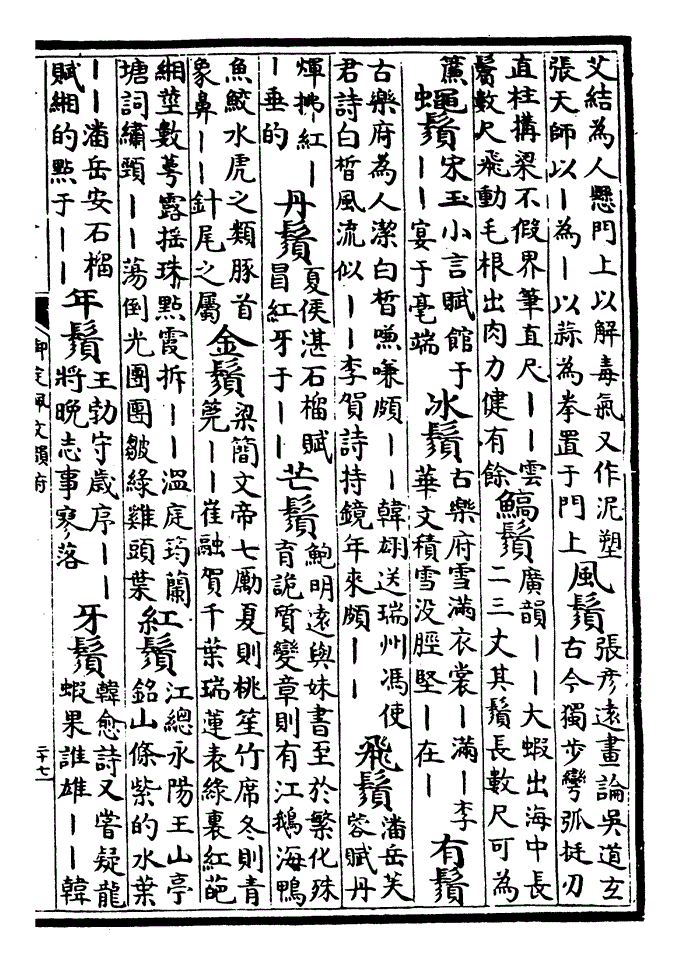 艾結為人懸門上以解毒氣又作泥塑
張天師以｜為｜以蒜為拳置于門上
風鬚
張彥遠畫論吳道玄
古今獨步彎弧挺刃
直柱搆梁不假界筆直尺｜｜雲
鬢數尺飛動毛根出肉力健有餘
鰝鬚
廣韻｜｜大蝦出海中長
二三丈其鬚長數尺可為
簾
蠅鬚
宋玉小言賦館于
｜｜宴于毫端
冰鬚
古樂府雪滿衣裳｜滿｜李
華文積雪没脛堅｜在｜
有鬚
古樂府為人潔白晳嗛兼頗｜｜韓翃送瑞州馮使
君詩白晳風流似｜｜李賀詩持鏡年來頗｜｜
飛鬚
潘岳芙
蓉賦丹
煇拂紅｜
｜垂的
丹鬚
夏侯湛石榴賦
冒紅牙于｜｜
芒鬚
鮑明遠與妹書至於繁化殊
育詭質變章則有江鵝海鴨
魚鮫水虎之類豚首
象鼻｜｜針尾之屬
金鬚
梁簡文帝七勵夏則桃笙竹席冬則青
筦｜｜崔融賀千葉瑞蓮表綠裹紅葩
緗莖數萼露摇珠點霞拆｜｜溫庭筠蘭
塘詞繡頸｜｜蕩倒光團團皺綠雞頭葉
紅鬚
江總永陽王山亭
銘山條紫的水葉
｜｜潘岳安石榴
賦緗的點于｜｜
年鬚
王勃守歲序｜｜
將晚志事寥落
牙鬚
韓愈詩又嘗疑龍
蝦果誰雄｜｜韓
御定佩文韻府
二十七